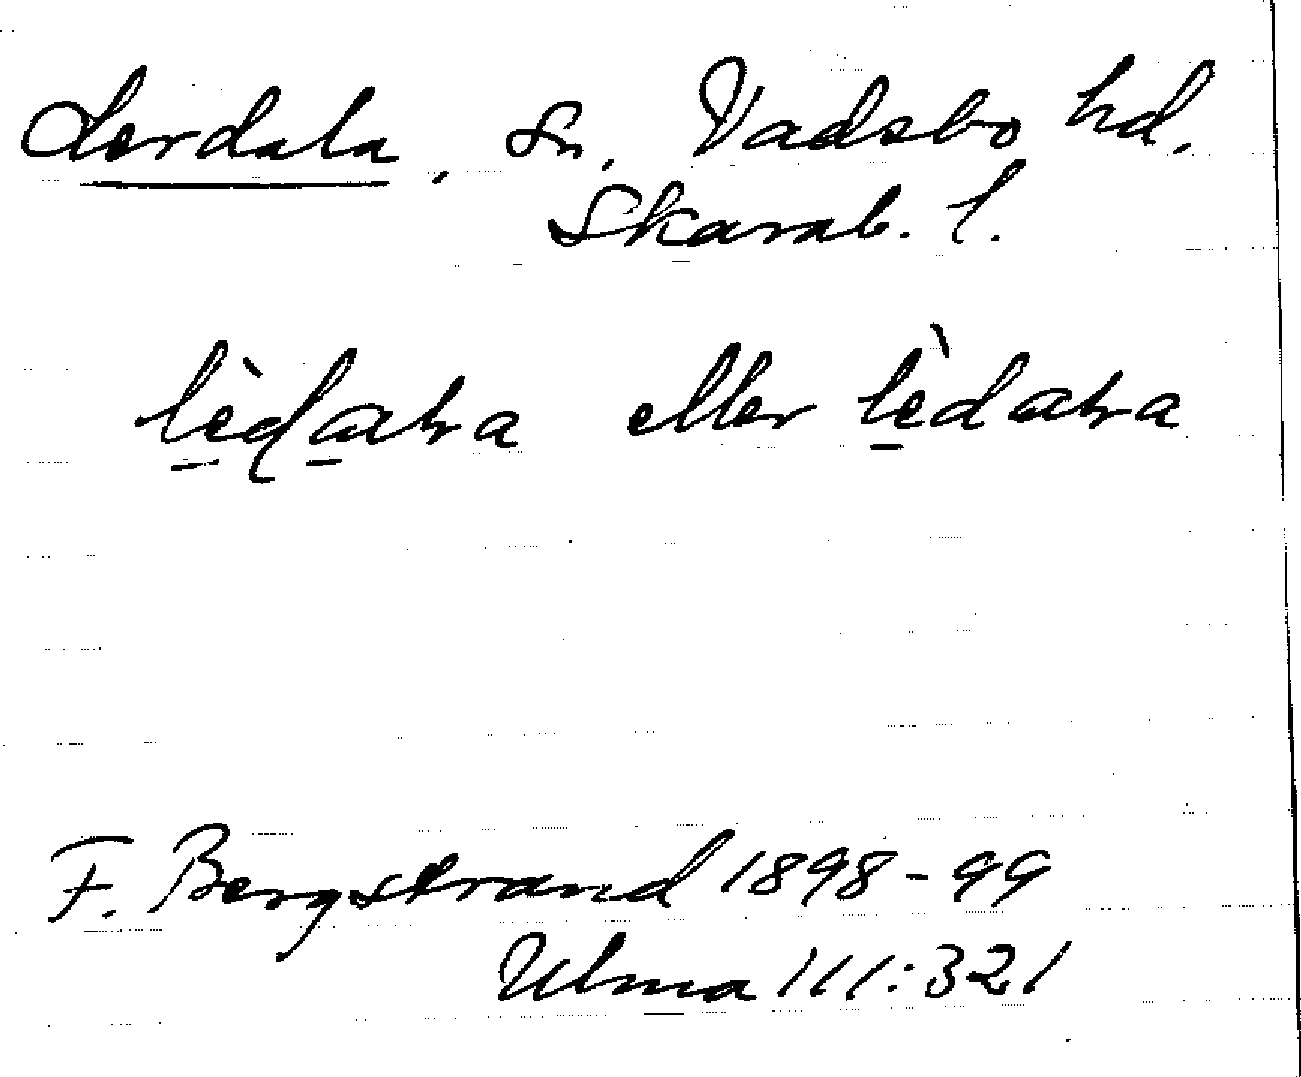 Lerdala, Sn, Vadsbo hd.
Skarab. l.
eller
F. Bergstrand 1898-99
Ulma 111:321